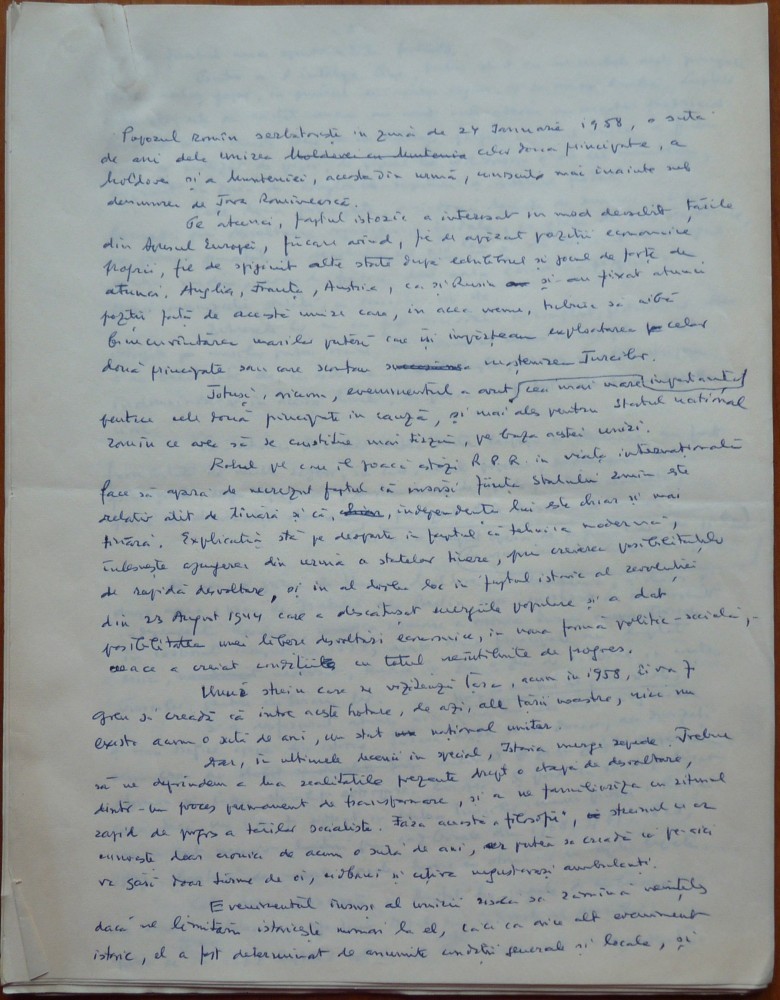 Poporul român serbătorește in ziua de 24 Ianuarie 1958, o sută
de ani dela unirea Moldovei cu Muntenia celor doua principate, a
Moldovei și a Munteniei, acesta din urmă, cunoscută mai inainte sub
denumirea de Țara Românească.
Pe atunci, faptul istoric a interesat in mod deosebit țările
din Apusul Europei, fiecare avind, fie de apărat poziții economice
proprii, fie de sprijinit alte state după echilibrul și jocul de forțe de
atunci. Anglia, Franța, Austria, ca și Rusia și-au fixat atunci
poziții față de această unire care, in acea vreme, trebuia să aibă
binecuvântarea marilor puteri care iși impărțeau exploatarea celor
două principate sau care scontau moștenirea Turcilor.
Totuși, oricum, evenimentul a avut cea mai mare importanță
pentru cele două principate in cauză, și mai ales pentru Statul național
romîn ce avea să se constitue mai tîrziu, pe baza acestei uniri.
Rolul pe care il joacă astăzi R.P.R. in viața internațională
face să apară de necrezut faptul că insăși ființa Statului romîn este
relativ atit de tînără și că, independența lui este chiar și mai
tînără. Explicația stă pe deoparte in faptul că tehnica modernă,
inlesnește ajungerea din urmă a statelor tinere, prin crearea posibilităților
de rapidă desvoltare, și in al doilea loc in faptul istoric al revoluției
din 23 August 1944 care a descătușat energiile populare și a dat
posibilitatea unei libere desvoltări economice, in noua formă politic-socială, -
ceeace a creiat condițiile cu totul neintîlnite de progres.
Unui strein care ne vizitează Țara, acum in 1958, ii va fi
greu să creadă că intre aceste hotare, de azi, ale țării noastre, nici nu
exista acum o sută de ani, un stat național unitar.
Dar, in ultimele decenii in special, Istoria merge repede. Trebue
să ne deprindem a lua realitățile prezente drept o etapă de desvoltare,
dintr-un proces permanent de transformare, și a ne familiariza cu ritmul
rapid de progres a țărilor socialiste. Fără această „filosofie”, streinul ce ar
cunoaște doar cronica de acum o sută de ani, ar putea să creadă că pe-aici
va găsi doar turme de oi, ciobani și cițiva negustorași ambulanți.
Evenimentul insuși al unirii riscă să rămînă neințeles
dacă ne limităm istoricește numai la el, căci ca orice alt eveniment
istoric, el a fost determinat de anumite condiții generale și locale, și